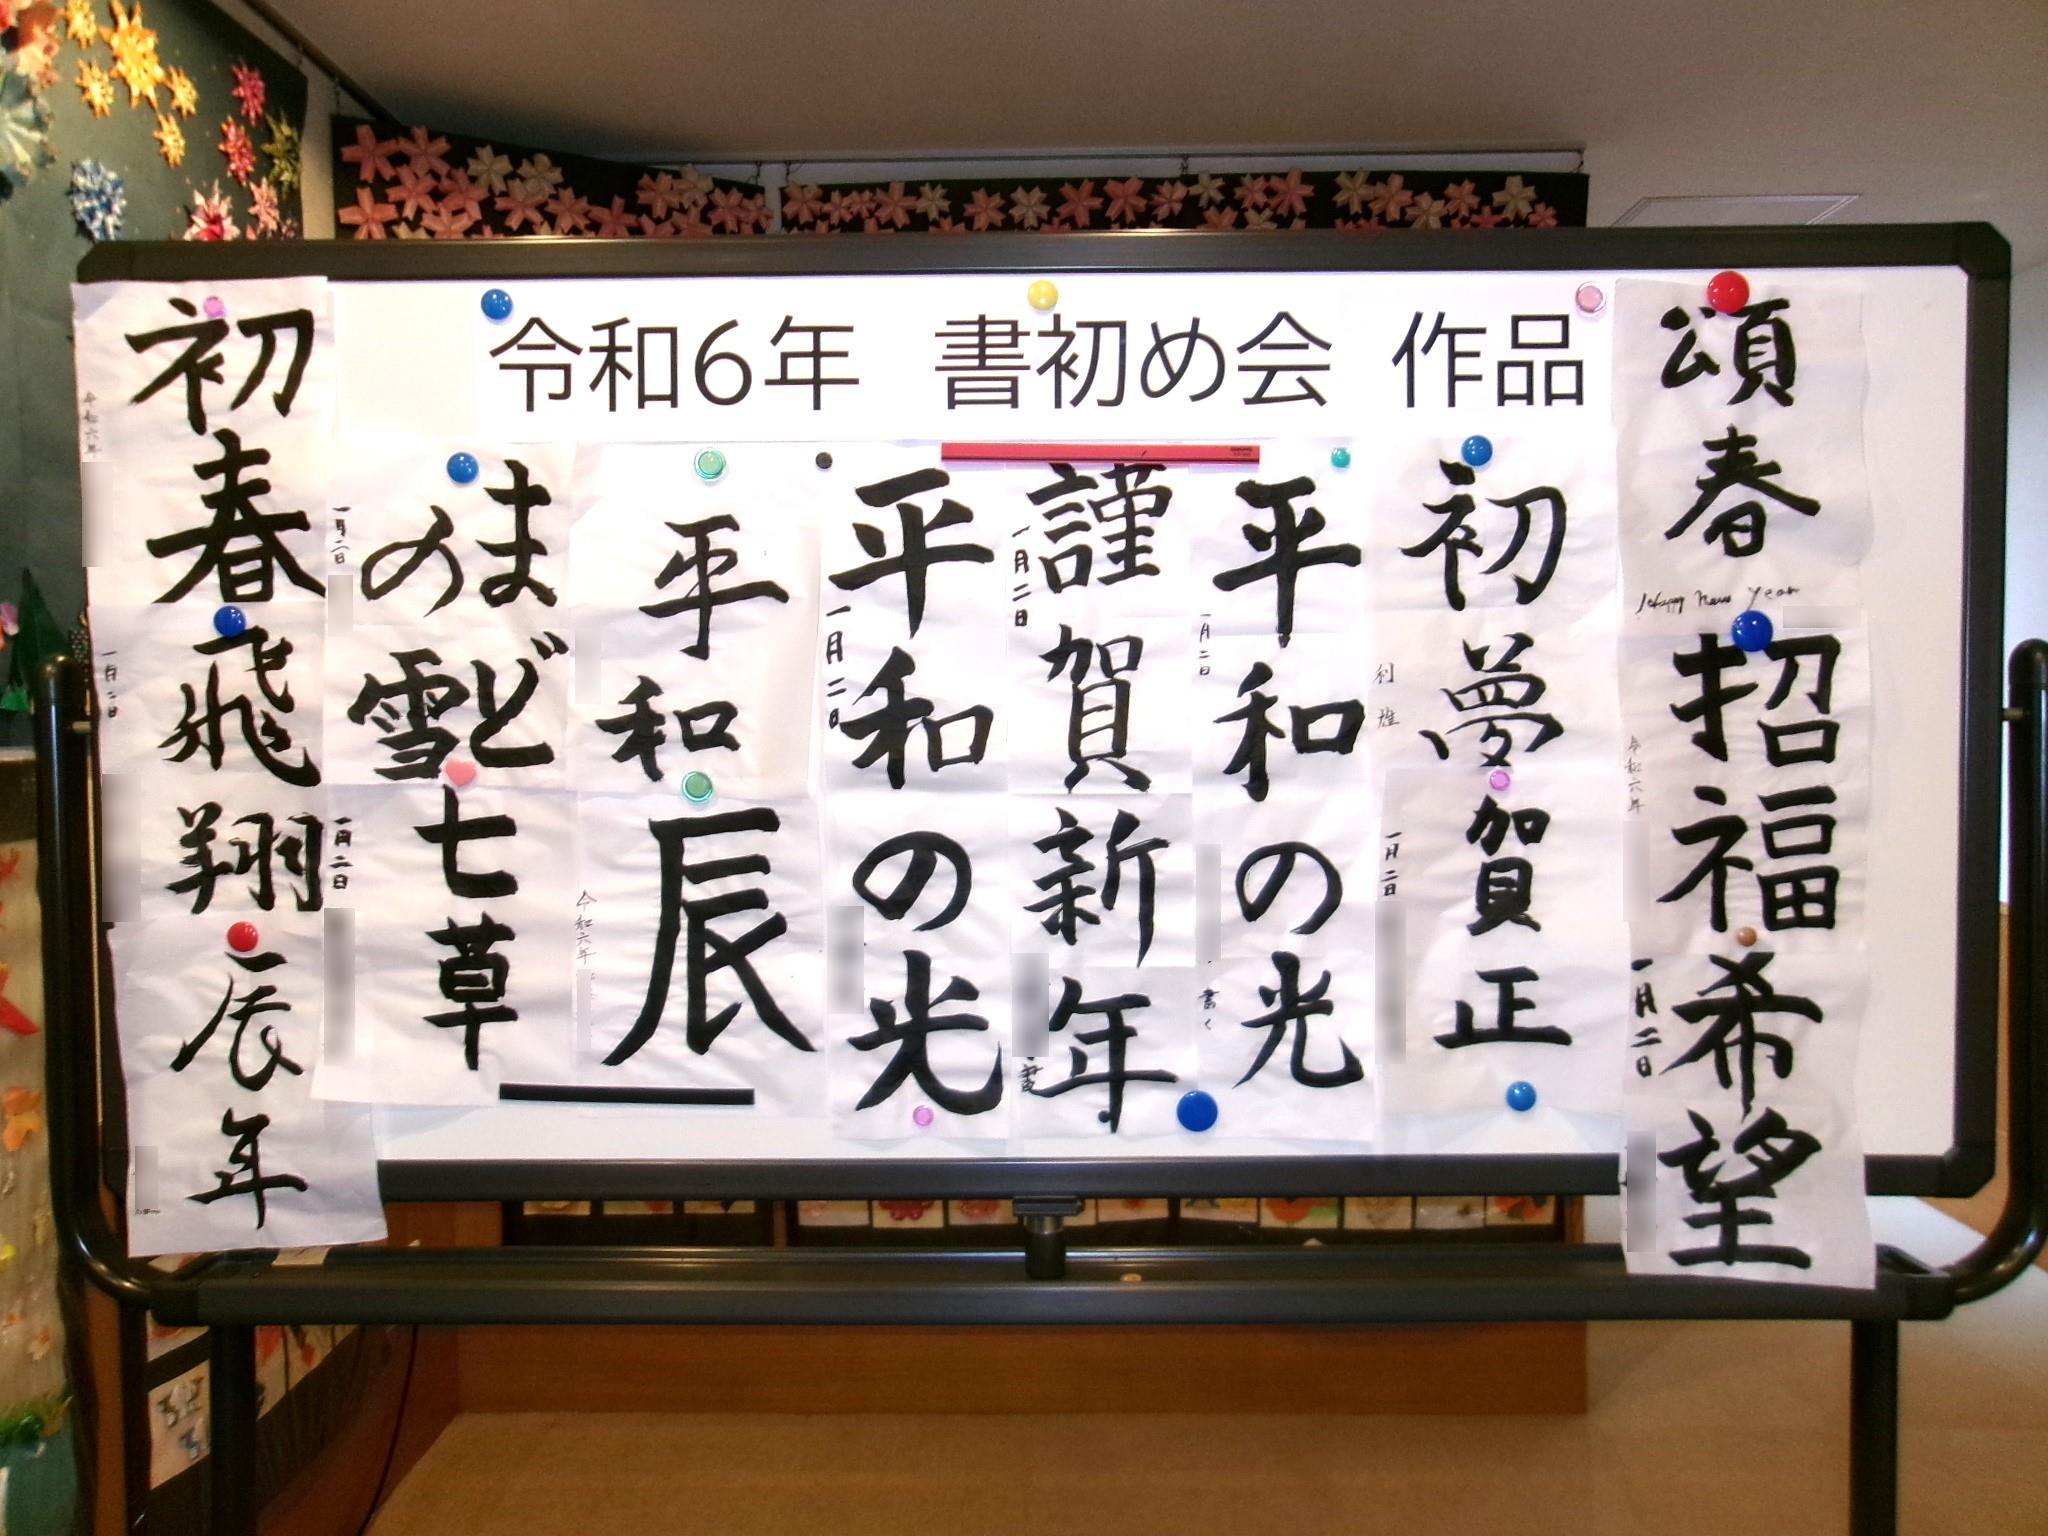 令和6年 書初め会 作品
頌春
Happy New Year
招福
令和六年
希望
一月二日
初夢
利雄
賀正
一月二日
平和の光
一月二日
書く
謹賀新年
一月二日
平和の光
一月二日
平和
辰
令和六年
まど
の雪
一月二日
七草
一月二日
初春
令和六年
飛翔
一月二日
辰年